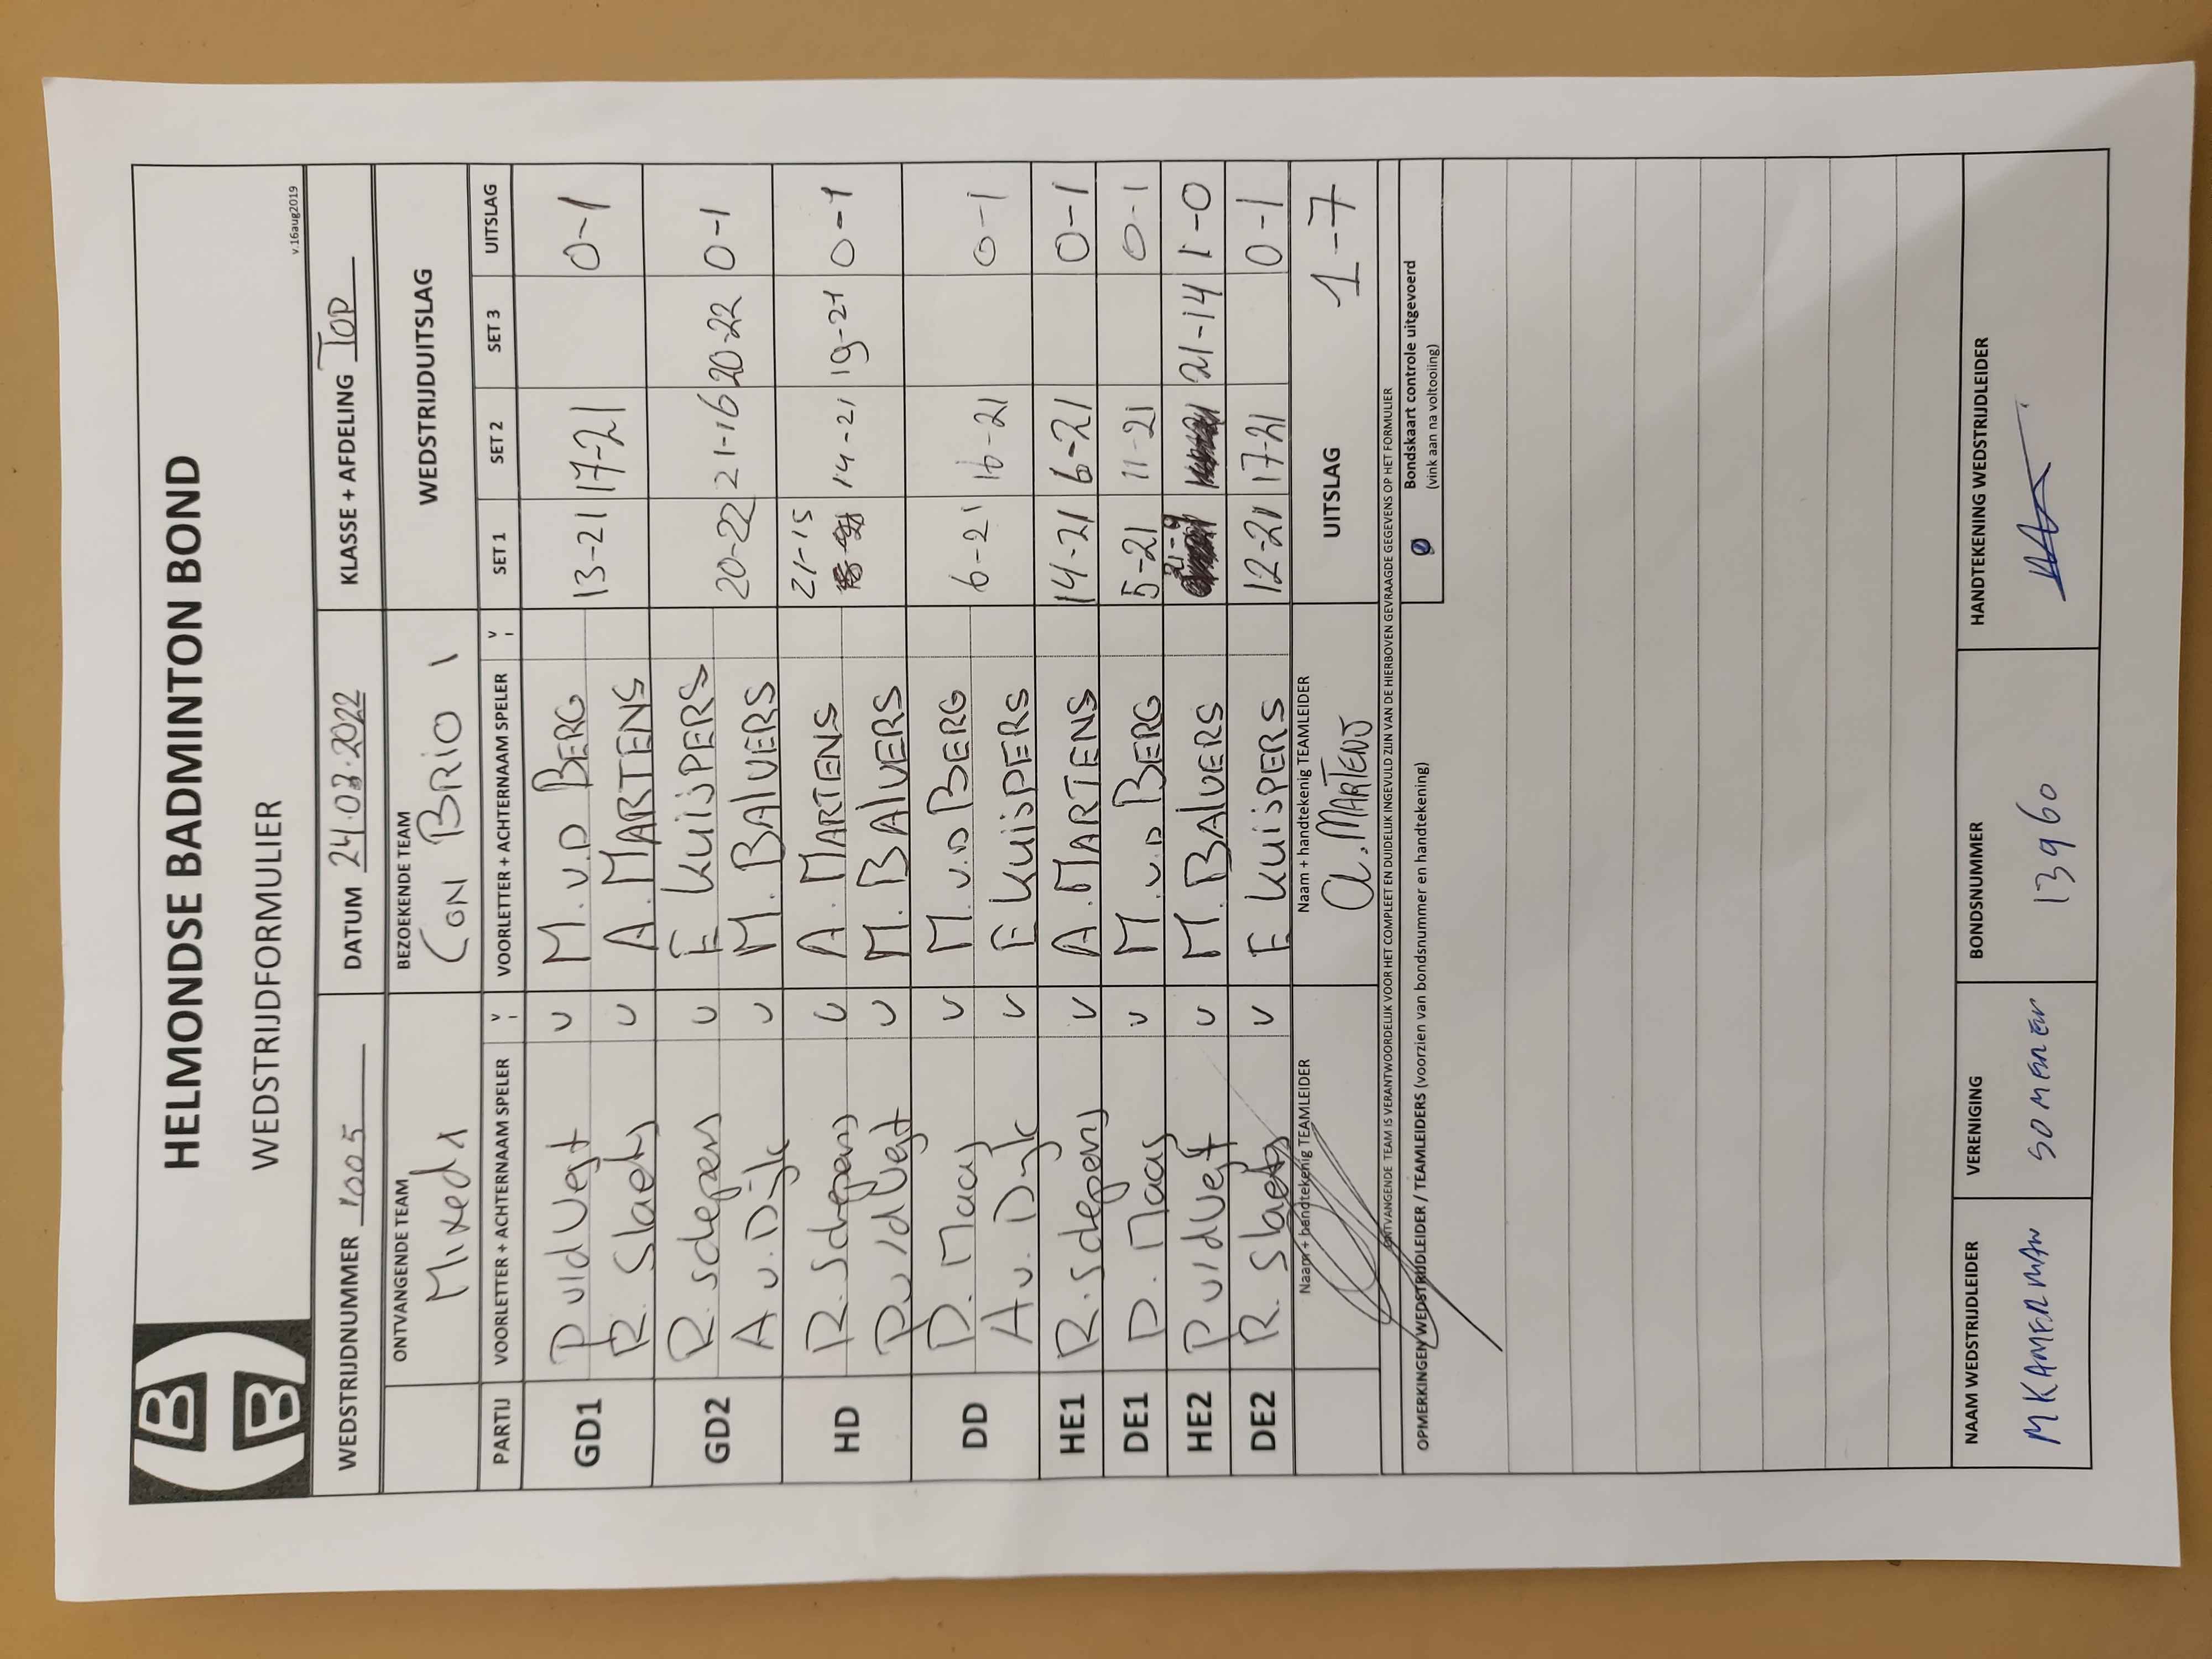 HELMONDSE BADMINTON BOND
WEDSTRIJDFORMULIER
v.16aug2019
WEDSTRIJDNUMMER 1005 DATUM 24.03.2022 KLASSE + AFDELING TOP
ONTVANGENDE TEAM BEZOEKENDE TEAM WEDSTRIJDUITSLAG
Mixed 1 CON BRIO 1
PARTIJ VOORLETTER + ACHTERNAAM SPELER V VOORLETTER + ACHTERNAAM SPELER V SET 1 SET 2 SET 3 UITSLAG
GD1 P vld Vegt v M. v.D BERG 13-21 17-21 0-1
R. Slaets v A. MARTENS
GD2 R. Schepens v F KUijPERS 20-22 21-16 20-22 0-1
A v. Dijk v M. BAlVERS
HD R. Schepens v A. MARTENS 21-15 14-21 19-21 0-1
P v/d Vegt v M. BAlVERS
DD D. Maas v M. v.D BERG 6-21 16-21 0-1
A v. Dijk v F KUijPERS
HE1 R. Schepens v A. MARTENS 14-21 6-21 0-1
DE1 D. Maas v M. v.D BERG 5-21 11-21 0-1
HE2 P v/d Vegt v M. BAlVERS 21-9 21-14 1-0
DE2 R. Slaets v F KUijPERS 12-21 17-21 0-1
Naam + handtekenig TEAMLEIDER Naam + handtekenig TEAMLEIDER UITSLAG 1-7
a. MARTENS
ONTVANGENDE TEAM IS VERANTWOORDELIJK VOOR HET COMPLEET EN DUIDELIJK INGEVULD ZIJN VAN DE HIERBOVEN GEVRAAGDE GEGEVENS OP HET FORMULIER
OPMERKINGEN WEDSTRIJDLEIDER / TEAMLEIDERS (voorzien van bondsnummer en handtekening)
Bondskaart controle uitgevoerd
(vink aan na voltooiing)
NAAM WEDSTRIJDLEIDER VERENIGING BONDSNUMMER HANDTEKENING WEDSTRIJDLEIDER
M KAMERMAN SOMEREN 13960